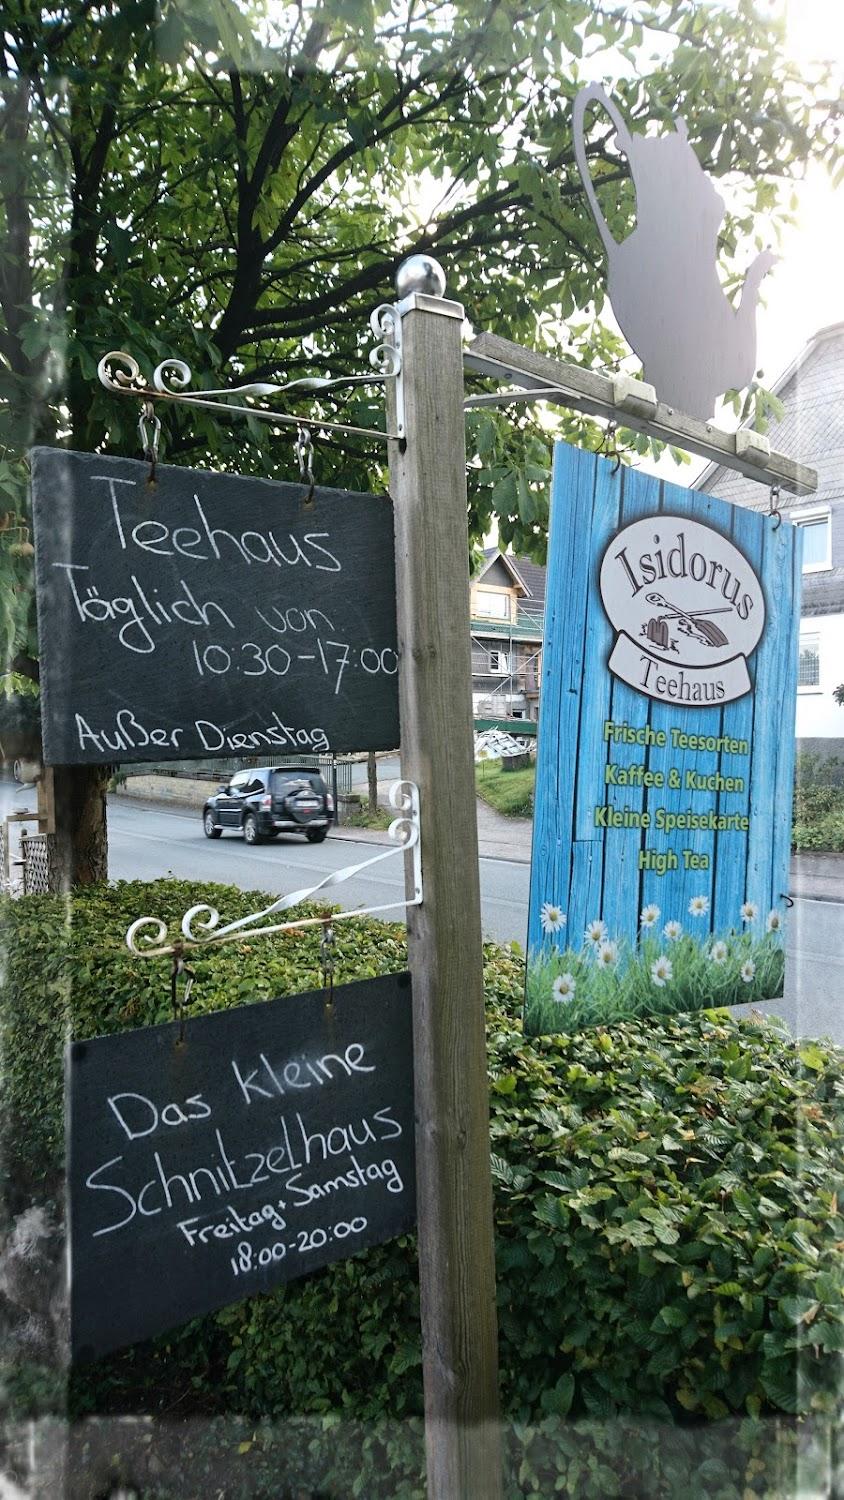 Teehaus
Täglich von
10:30-17:00
Außer Dienstag
Das kleine
Schnitzelhaus
Freitag + Samstag
18:00-20:00
Isidorus
Teehaus
Frische Teesorten
Kaffee & Kuchen
Kleine Speisekarte
High Tea